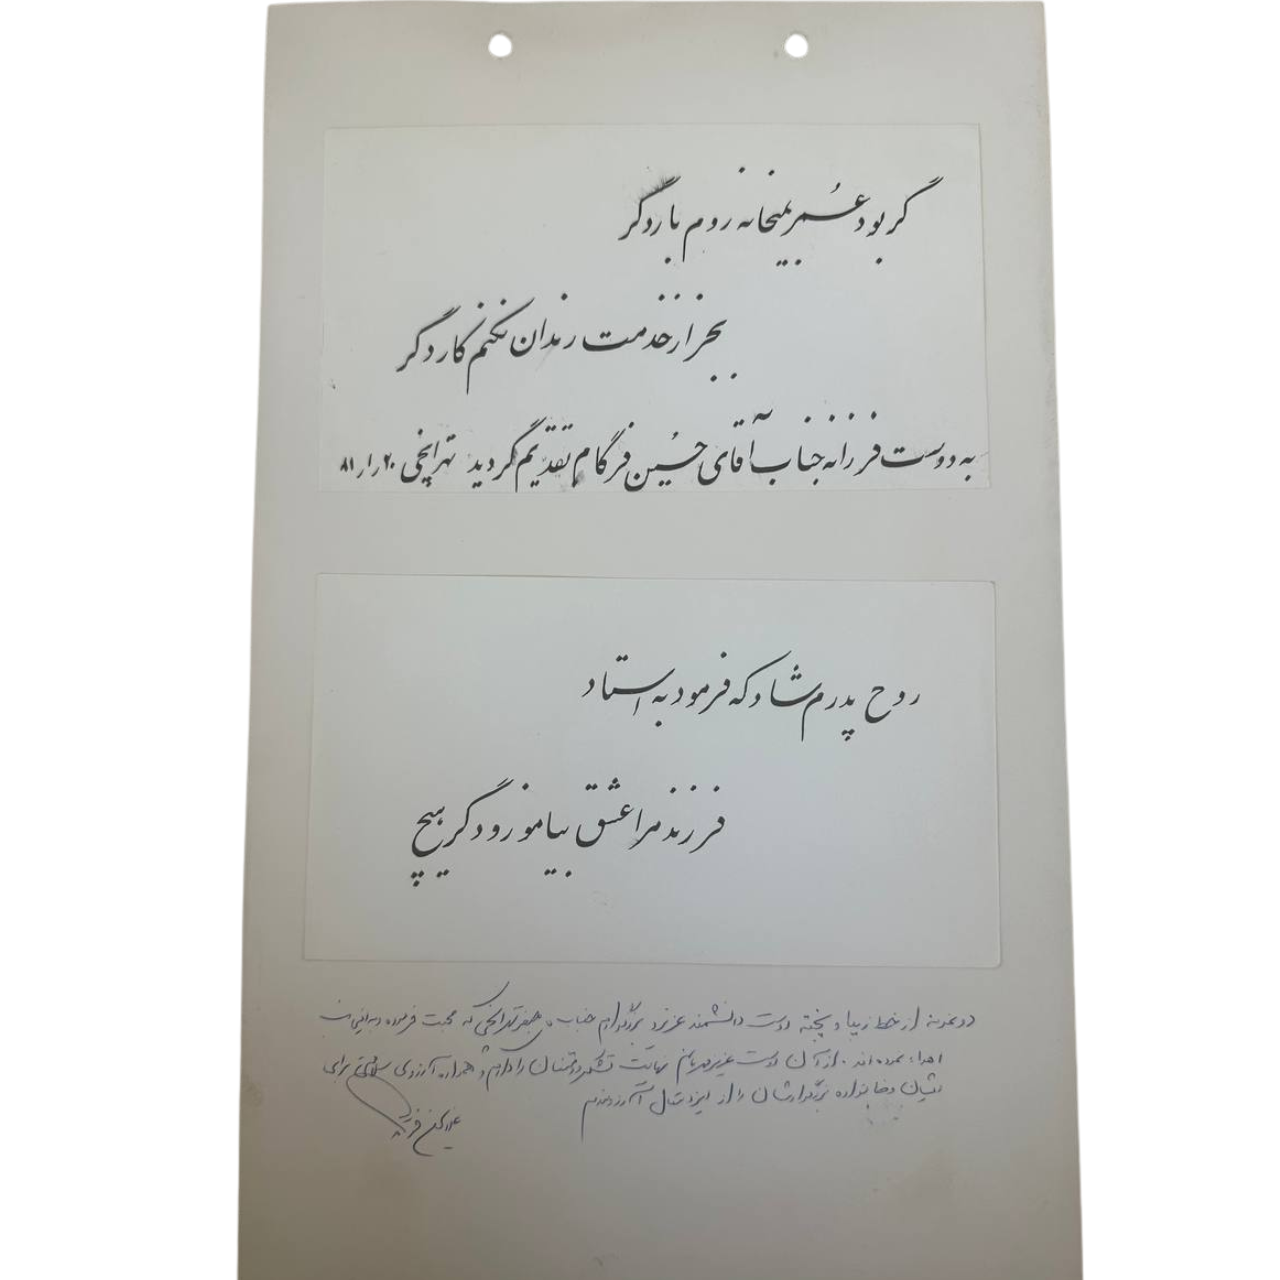 گر بود عُمر بمیخانه روم بار دگر
بجز از خدمت رندان نکنم کار دگر
به دوست فرزانه جناب آقای حسین فرگام تقدیم گردید تهرانچی ۲۰ر۱ر۸۱
روح پدرم شاد که فرمود به استاد
فرزند مرا عشق بیاموز و دگر هیچ
دو نمونه از خط زیبا و پخته دوست دانشمند عزیز و بزرگوارم جناب تهرانچی که محبت فرموده و به اینجانب
اهداء نموده‌اند. از آن دوست عزیز مهربانم نهایت تشکر و امتنان را دارم و همواره آرزوی سلامتی برای
ایشان و خانواده بزرگوارشان را از ایزد متعال آرزومندم